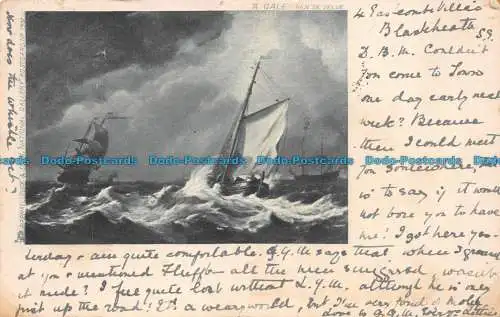 "A GALE" VAN DE VELDE
4 Eascombe Villas
Blackheath
S.E.
D. B. M. Couldn't
you come to Town
one day early next
week? Because
then I could meet
you somewhere,
is to say if it would
not bore you to have
me! I got here yes-
terday & am quite comfortable. G.G.M says that when I
at you & mentioned Fluff - all the men wasn't
it rude? I feel quite lost without G.M. although he is only
just up the road! It's a weary world, but I'm very fond of
love to G.G.M.
How does the whistle
Bobs-Postcards Bobs-Postcards Bobs-Postcards Bobs-Postcards